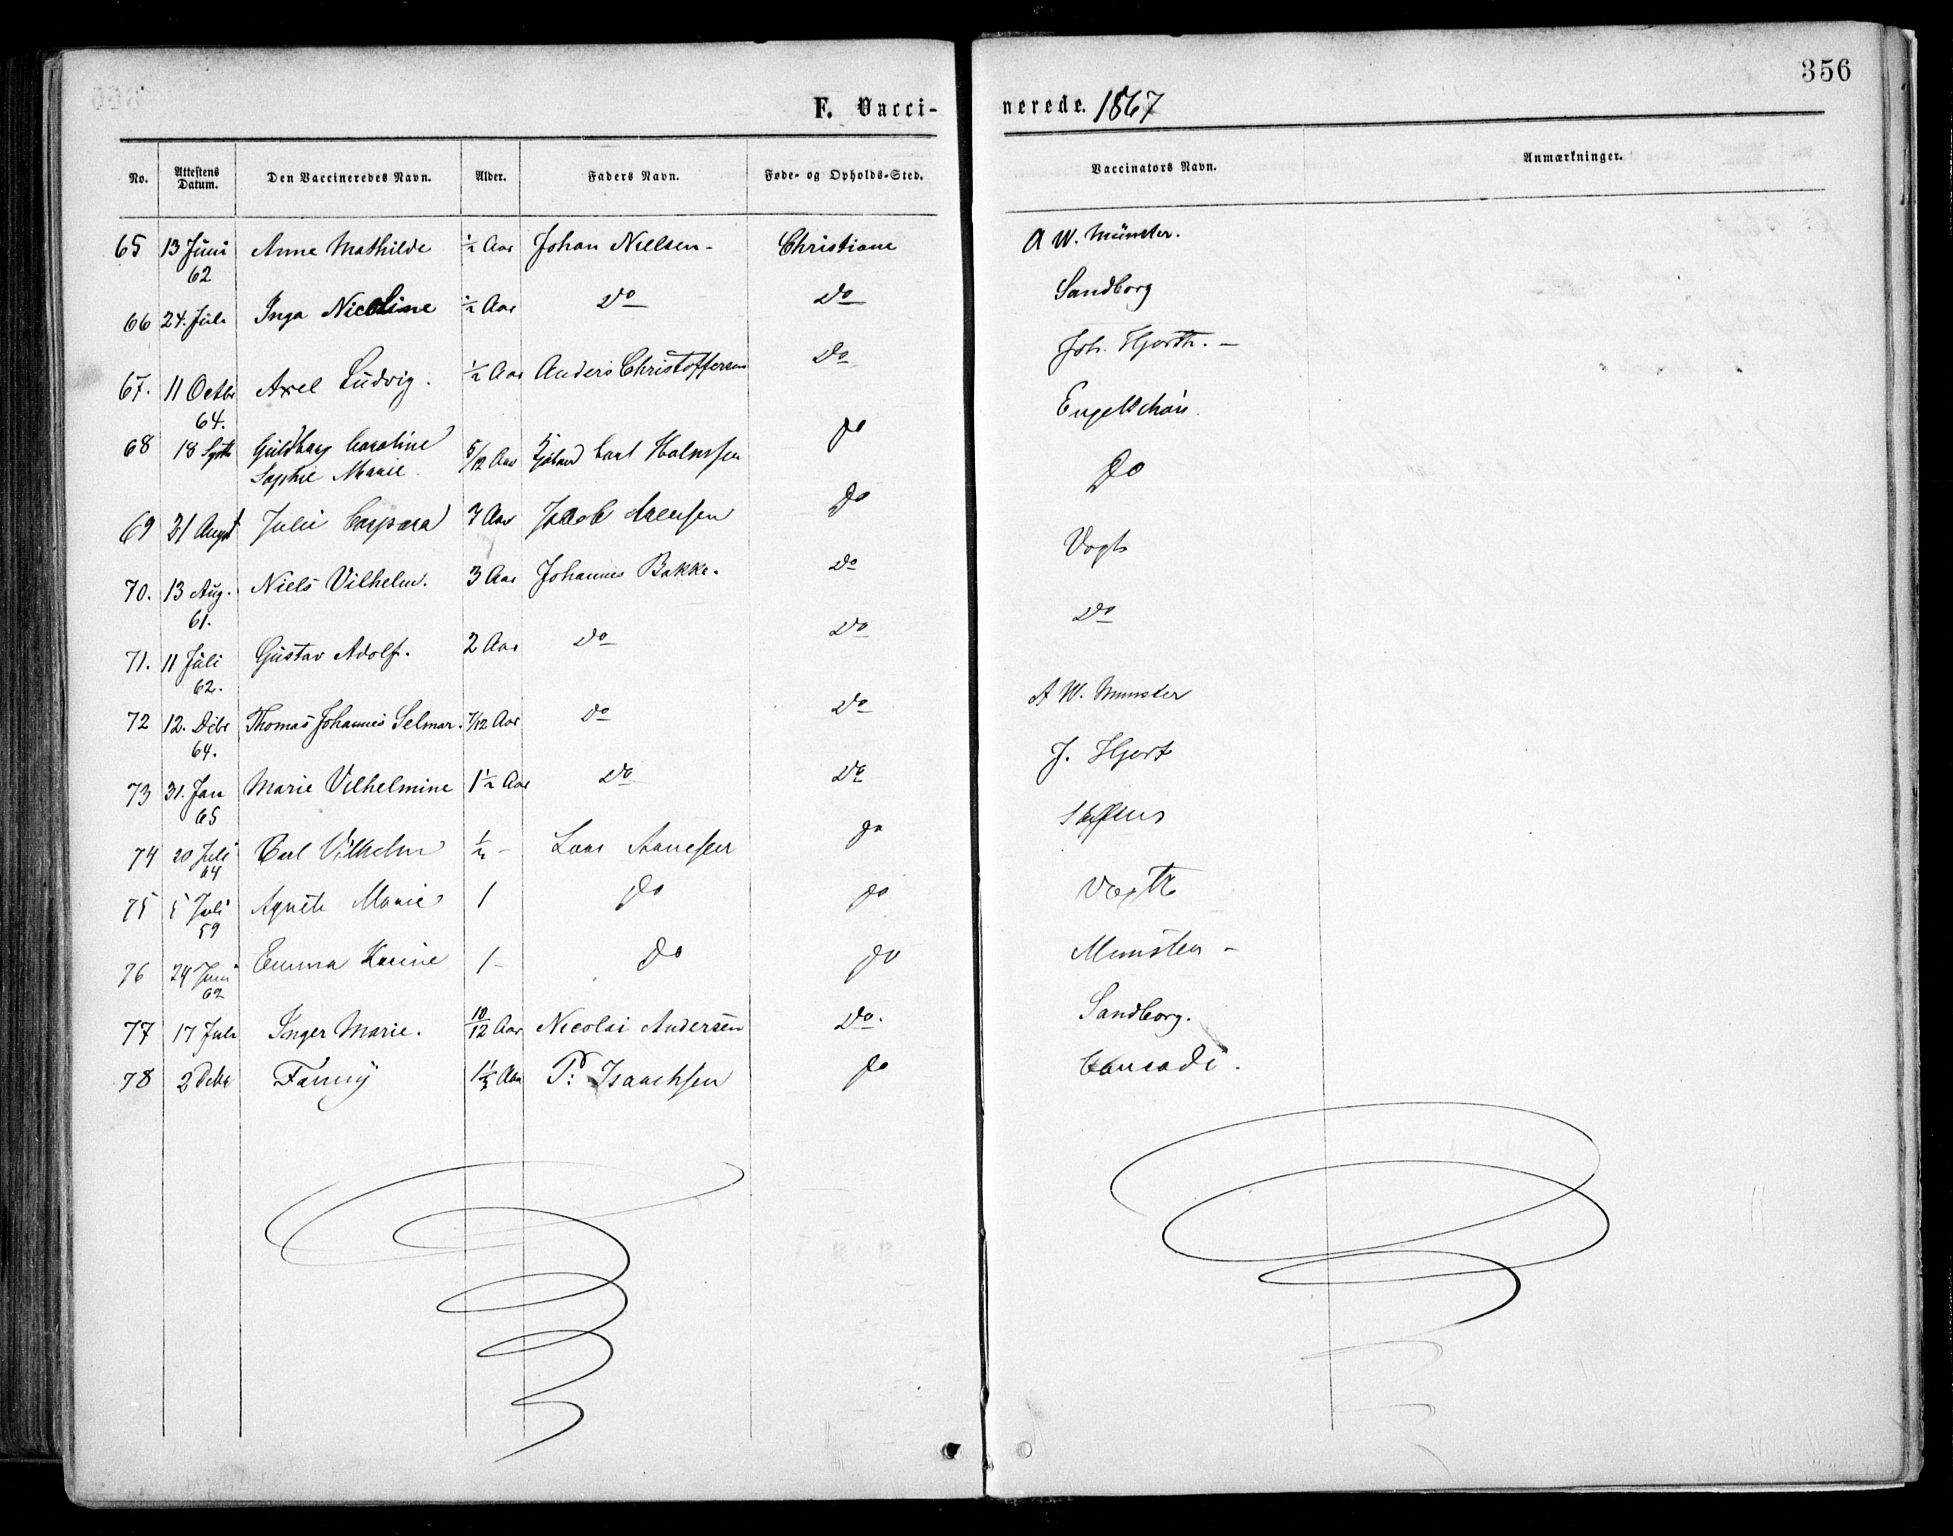 356
F. Vacci-
nerede. 1867
No.
Attestens Datum.
Den Vaccineredes Navn.
Alder.
Faders Navn.
Føde- og Opholds-Sted.
Vaccinators Navn.
Anmærkninger.
65 13 Juni 62 Anne Mathilde ½ Aar Johan Nielsen - Christiane A W. Münster.
66 24. Juli Inga Nicoline ½ Aar Do Do Sandborg
67. 11 Octbr 64. Axel Ludvig. ½ Aar Anders Christoffersen Do Joh. Hjorth. -
68 18 Guldborg Caroline Sophie Marie. 5/12 Aar Carl Holmsen Do
69 21 August Julie Caspara 3 Aar Jacob Do Do
70. 13 Aug. 61. Niels Vilhelm. 3 Aar Johannes Bakke. Do Vogt
71. 11 Juli 62. Gustav Adolf. 2 Aar Do Do Do
72 12. Dcbr 64. Thomas Johannes Selmar. 7/12 Aar Do Do A W. Munster
73 31. Jan 65 Marie Vilhelmine 1½ Aar Do Do J. Hjort
74 20 Juli 64 Carl Vilhelm ½ - Lars Aanesen Do
75 5 Juli 59 Agnete Marie 1 Do Do Vogt
76 24 Juni 62 Emma Karine 1 - Do Do Munster -
77 17 Juli Inger Marie. 10/12 Aar Nicolai Andersen Do. Sandborg.
78 2 Debr Fanny 1½ Aar P: Isaachsen Do Conradi.